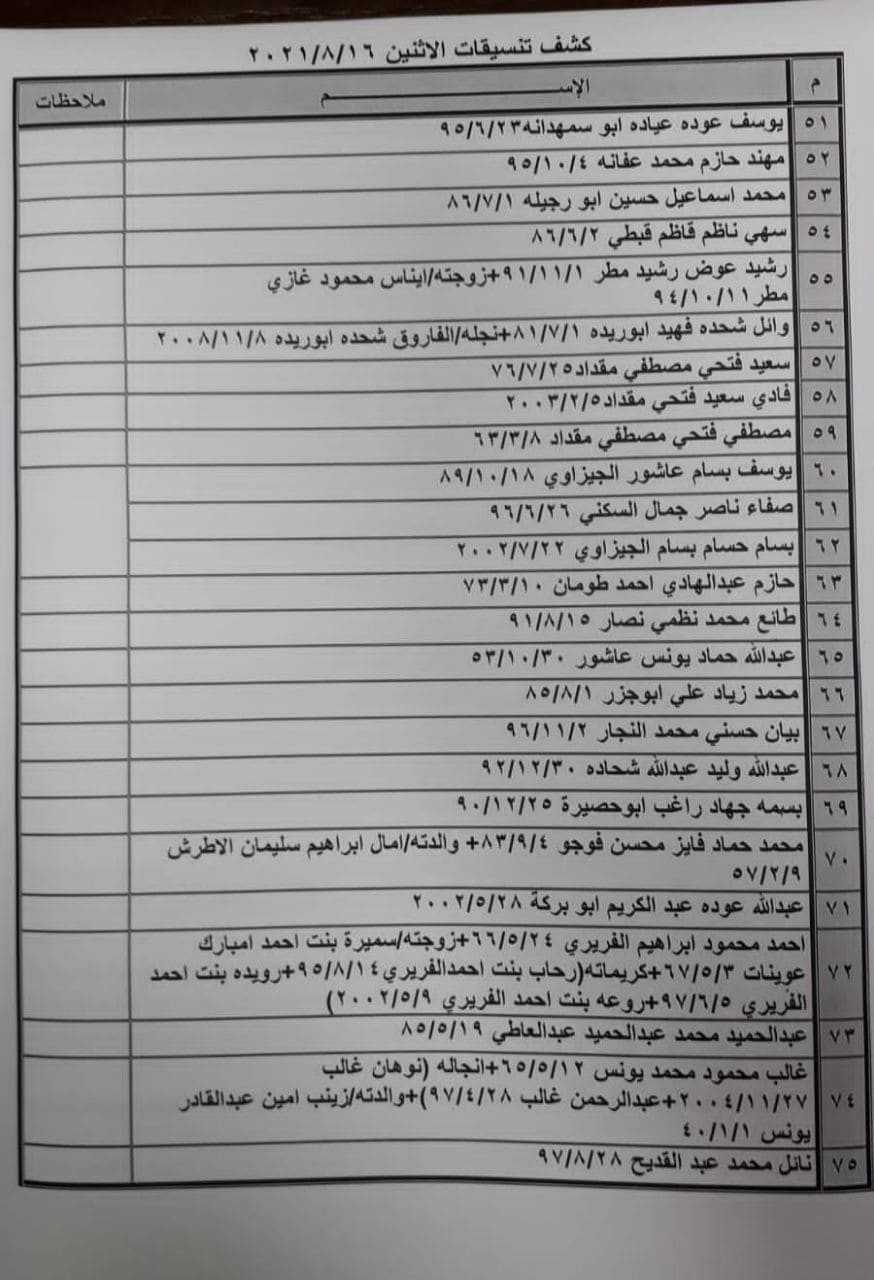 كشف تنسيقات الاثنين ٢٠٢١/٨/١٦
م الإســـــــــــم ملاحظات
٥١ يوسف عوده عياده ابو سمهدانه٩٥/٦/٢٣
٥٢ مهند حازم محمد عفانه ٩٥/١٠/٤
٥٣ محمد اسماعيل حسين ابو رجيله ٨٦/٧/١
٥٤ سهي ناظم قاظم قبطي ٨٦/٦/٢
٥٥ رشيد عوض رشيد مطر ٩١/١١/١+زوجته/ايناس محمود غازي
مطر٩٤/١٠/١١
٥٦ وائل شحده فهيد ابوريده ٨١/٧/١+نجله/الفاروق شحده ابوريده ٢٠٠٨/١١/٨
٥٧ سعيد فتحي مصطفي مقداد٧٦/٧/٢٥
٥٨ فادي سعيد فتحي مقداد٢٠٠٣/٢/٥
٥٩ مصطفي فتحي مصطفي مقداد ٦٣/٣/٨
٦٠ يوسف بسام عاشور الجيزاوي ٨٩/١٠/١٨
٦١ صفاء ناصر جمال السكني ٩٦/٦/٢٦
٦٢ بسام حسام بسام الجيزاوي ٢٠٠٢/٧/٢٢
٦٣ حازم عبدالهادي احمد طومان ٧٣/٣/١٠
٦٤ طائع محمد نظمي نصار ٩١/٨/١٥
٦٥ عبدالله حماد يونس عاشور ٥٣/١٠/٣٠
٦٦ محمد زياد علي ابوجزر ٨٥/٨/١
٦٧ بيان حسني محمد النجار ٩٦/١١/٢
٦٨ عبدالله وليد عبدالله شحاده ٩٢/١٢/٣٠
٦٩ بسمه جهاد راغب ابوحصيرة ٩٠/١٢/٢٥
٧٠ محمد حماد فايز محسن فوجو ٨٣/٩/٤+ والدته/امال ابراهيم سليمان الاطرش
٥٧/٢/٩
٧١ عبدالله عوده عبد الكريم ابو بركة ٢٠٠٢/٥/٢٨
٧٢ احمد محمود ابراهيم الفريري ٦٦/٥/٢٤+زوجته/سميرة بنت احمد امبارك
عوينات ٦٧/٥/٣+كريماته(رحاب بنت احمدالفريري٩٥/٨/١٤+رويده بنت احمد
الفريري ٩٧/٦/٥+روعه بنت احمد الفريري ٢٠٠٢/٥/٩)
٧٣ عبدالحميد محمد عبدالحميد عبدالعاطي ٨٥/٥/١٩
٧٤ غالب محمود محمد يونس ٦٥/٥/١٢+انجاله (نوهان غالب
٢٠٠٤/١١/٢٧+عبدالرحمن غالب ٩٧/٤/٢٨)+والدته/زينب امين عبدالقادر
يونس ٤٠/١/١
٧٥ نائل محمد عبد القديح ٩٧/٨/٢٨